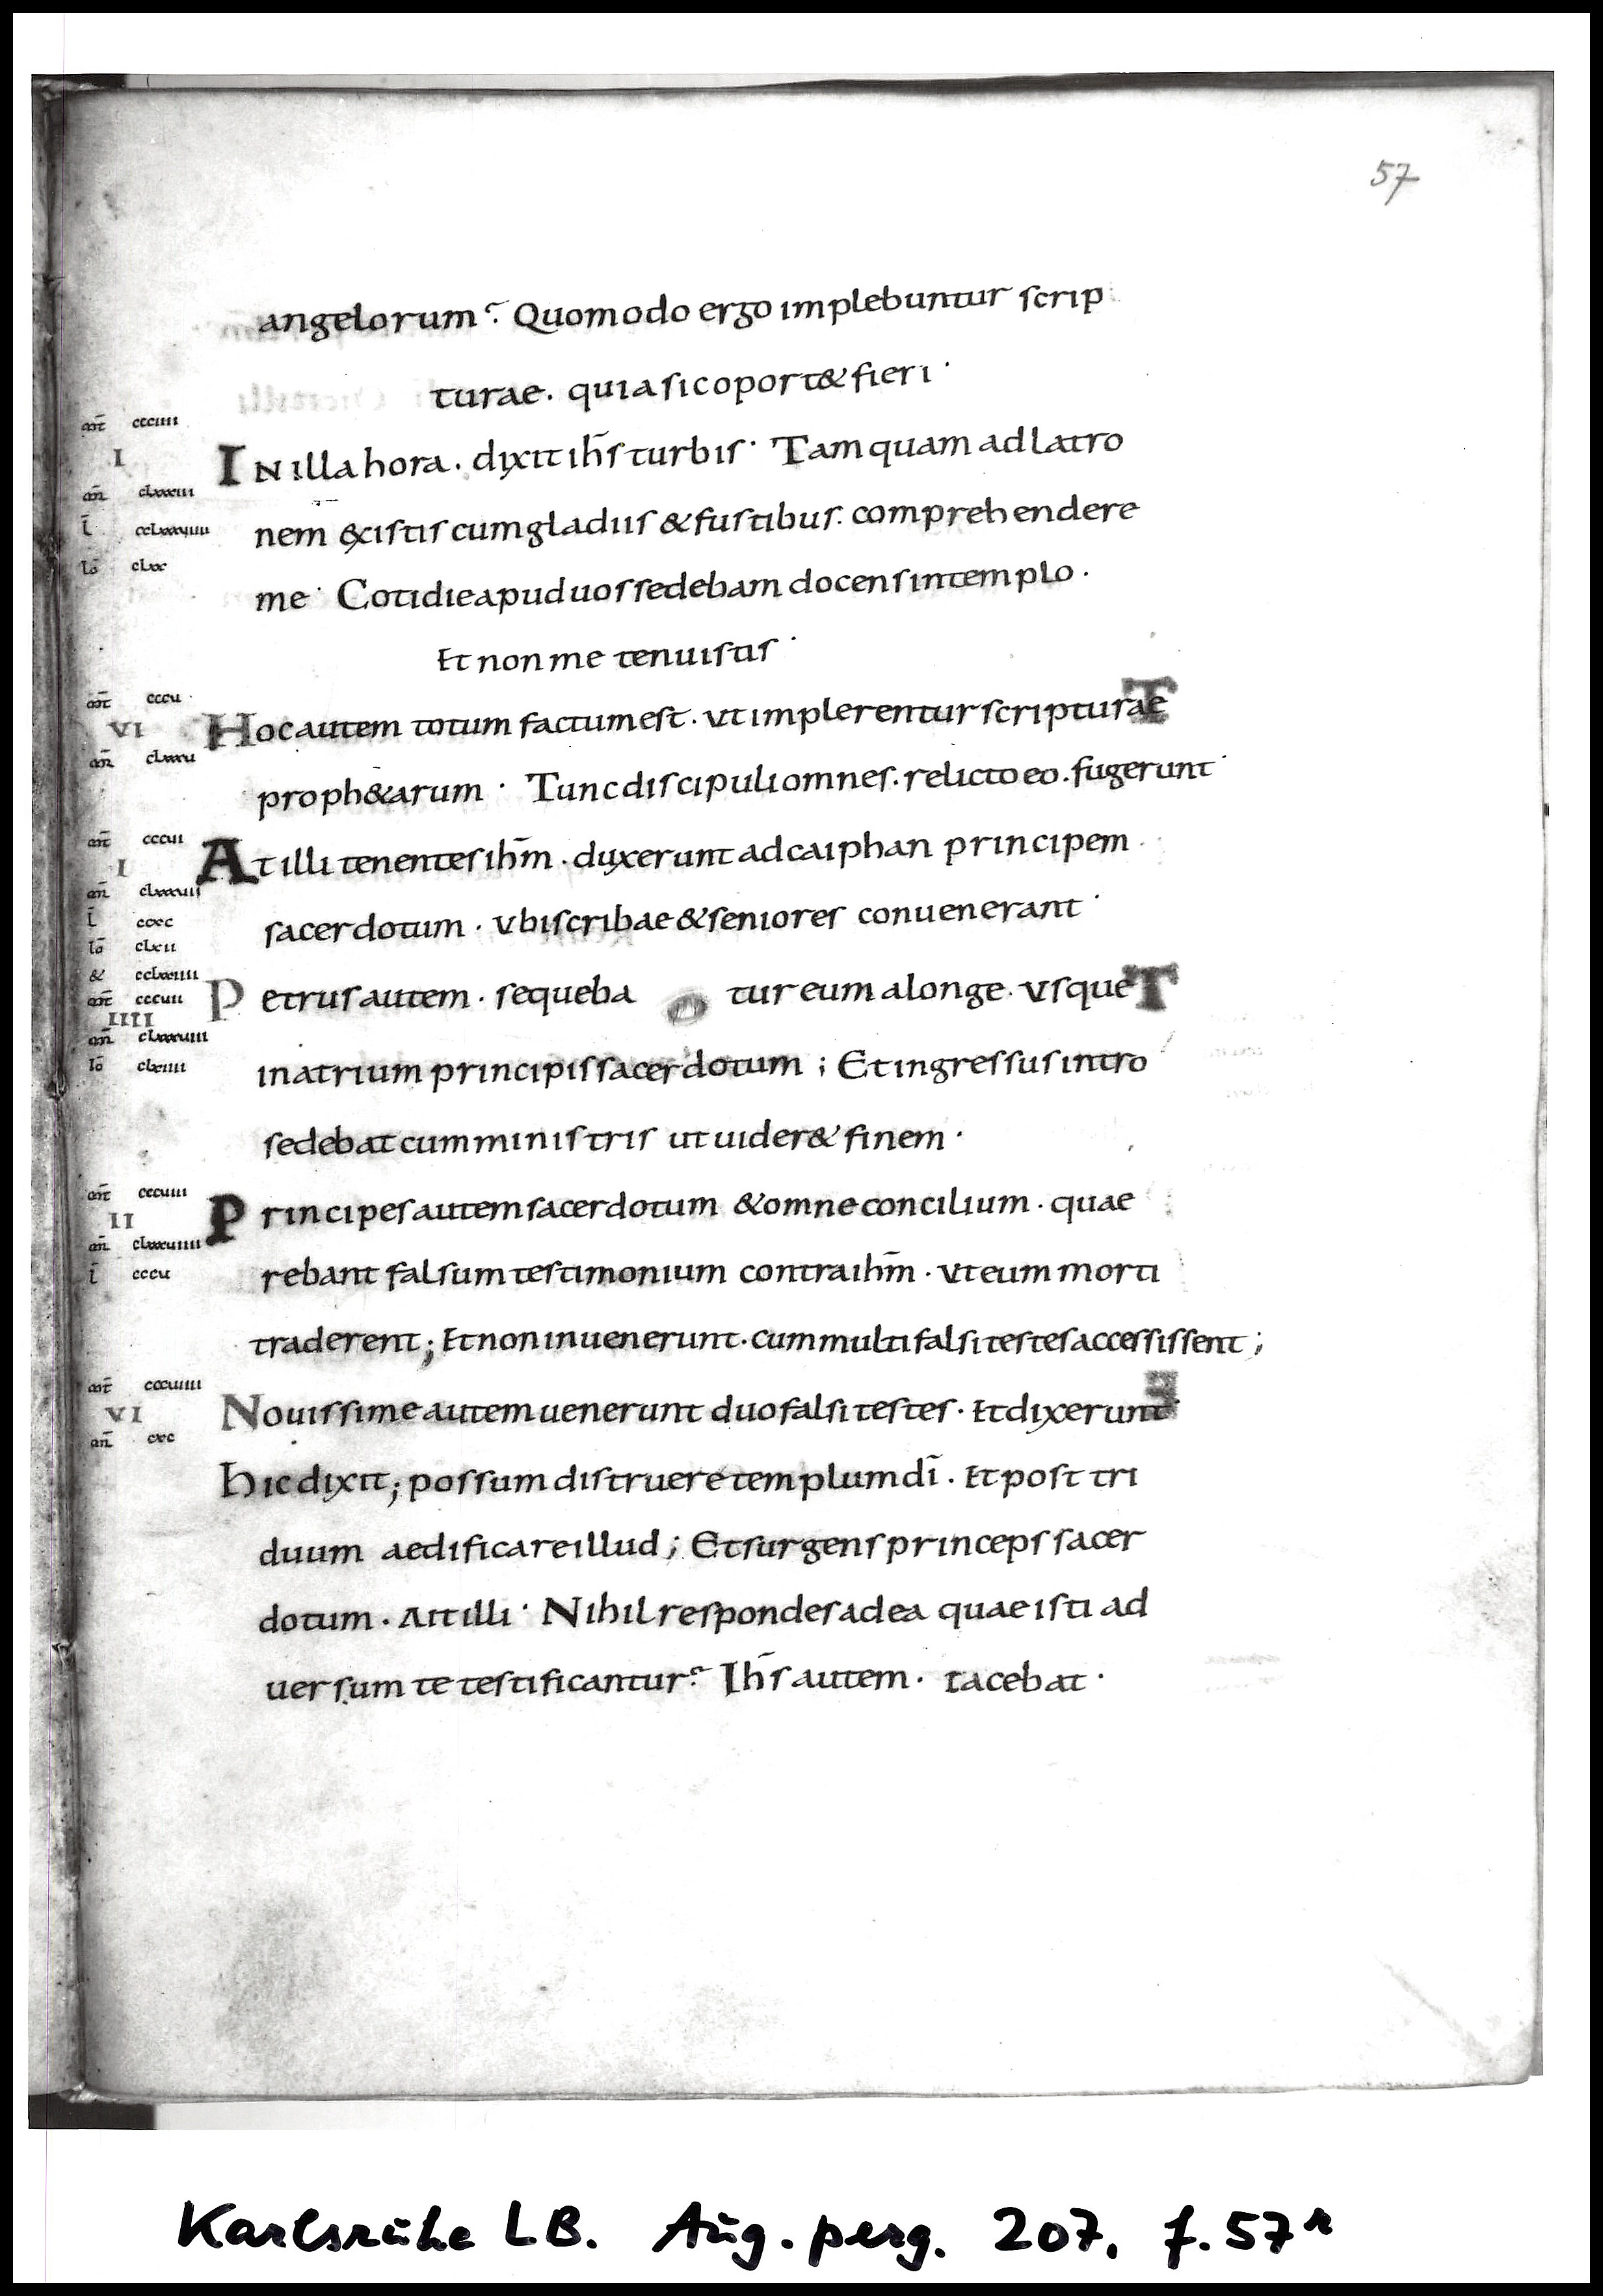 57
angelorum? Quomodo ergo implebuntur scrip
turae. quia sic oport& fieri·
mt ccciiii
I
In illa hora. dixit ihs̄ turbis· Tam quam ad latro
mr
l
nem &xistis cum gladiis & fustibus. comprehendere
io
me· Cotidie apud uos sedebam docens in templo.
Et non me tenuistis·
mt cccu
VI
Hoc autem totum factum est. ut implerentur scripturae
mr
proph&arum· Tunc discipuli omnes. relicto eo. fugerunt·
mt cccui
I
At illi tenentes ihm̄. duxerunt ad caiphan principem
mr
l
sacerdotum. ubi scribae & seniores conuenerant·
io
mt cccuii
IIII
Petrus autem. sequeba tur eum a longe. usque
mr
io
in atrium principis sacerdotum; Et ingressus intro
sedebat cum ministris ut uider& finem·
mt cccuiii
II
Principes autem sacerdotum & omne concilium. quae
mr
l cccu
rebant falsum testimonium contra ihm̄. ut eum morti
traderent; Et non inuenerunt. cum multi falsi testes accessissent;
mt cccuiiii
VI
Nouissime autem uenerunt duo falsi testes. Et dixerunt
mr cxc
hic dixit; possum distruere templum dī. Et post tri
duum aedificare illud; Et surgens princeps sacer
dotum. Ait illi· Nihil respondes ad ea quae isti ad
uersum te testificantur? Ihs̄ autem. tacebat·
Karlsruhe LB. Aug. perg. 207, f. 57r